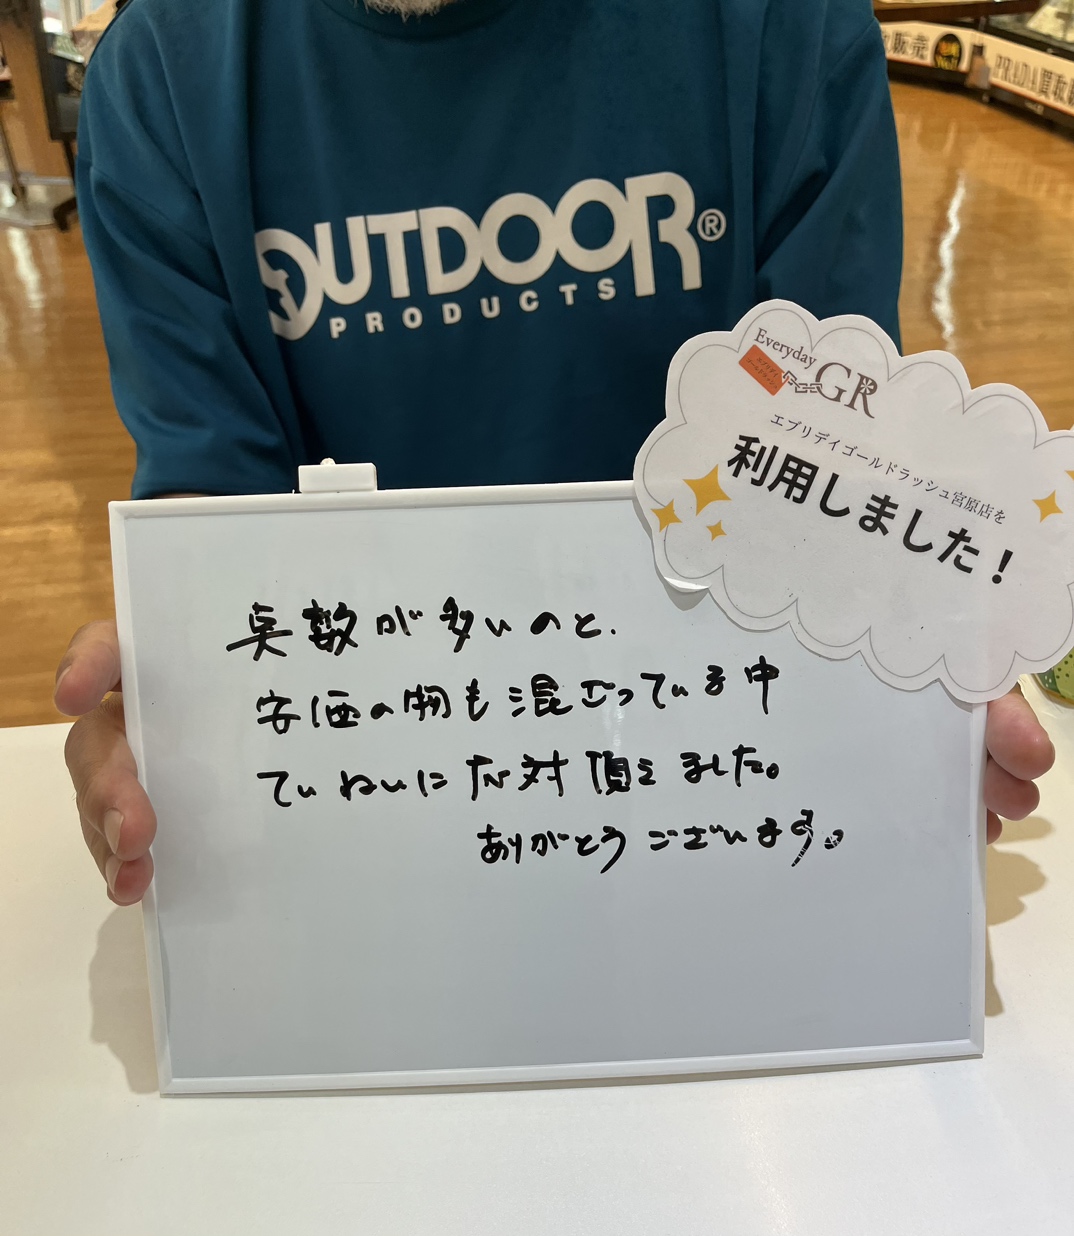 販売
PRADA買取
OUTDOOR®
PRODUCTS
Everyday
エブリデイ
ゴールドラッシュ
GR
エブリデイゴールドラッシュ宮原店を
利用しました！
点数が多いのと、
安価の物も混ざっている中
ていねいに応対頂きました。
ありがとうございます。